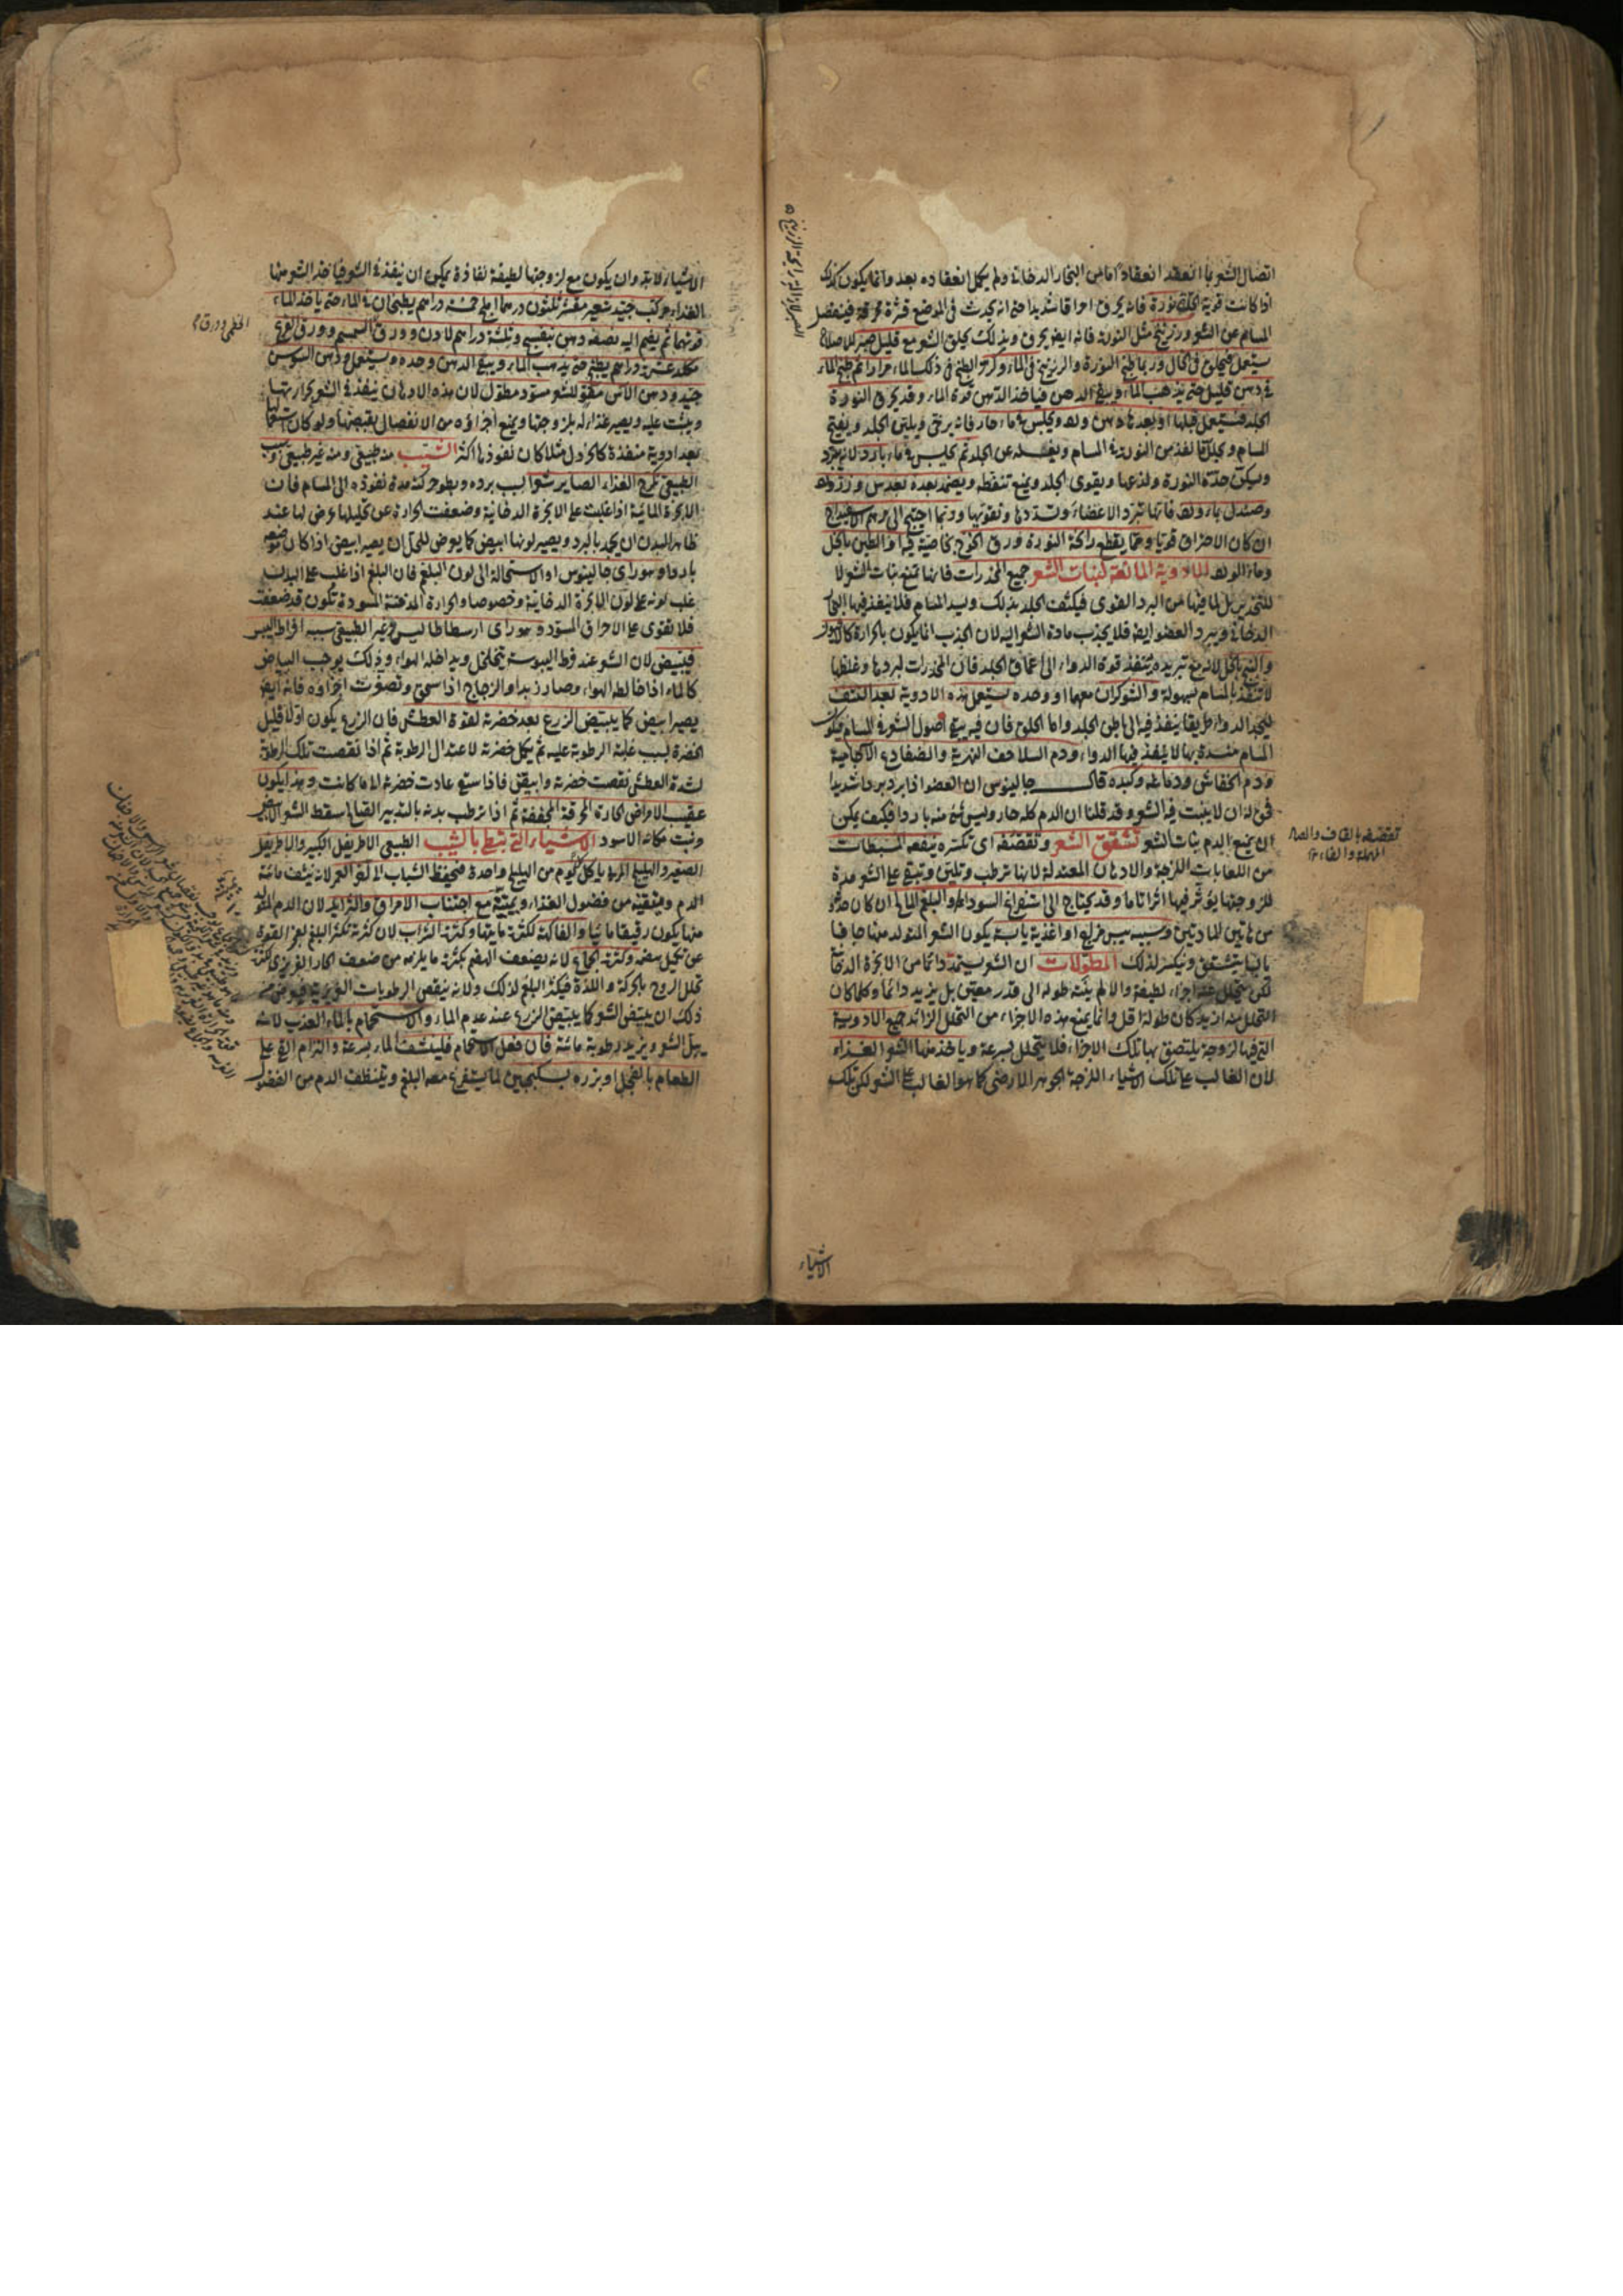 اتصال الشعر بما انعقد انعقادا ما من البخار الدخانى ولم يكمل انعقاده بعد وانما يكون كذلك
اذا كانت قوية نورة فانه يحرق احراقا شديدا حتى انه يحدث فى الموضع قشرة محرقة فينفصل
المسام عن الشعر وزرنيخ مثل النورة فانه ايضا يحرق وبذلك يحلق الشعر مع قليل صبر للاصلاح
يستعمل فيحلق فى الحال وربما طبخ النورة والزرنيخ فى الماء وكرر الطبخ فى ذلك الماء مرارا ثم طبخ الماء
فى دهن قليل حتى يذهب الماء ويبقى الدهن فياخذ الدهن قوة الماء وقد يحرق النورة
الجلد فيستعمل قبلها او بعدها دهن ورد ويجلس فى ماء حار فانه يرخى ويلين الجلد ويفتح
المسام ويحلل ما نفذ من النورة فى المسام ويغسله عن الجلد ثم يجلس فى ماء بارد لانه يبرد
ويسكن حدة النورة ولذعها ويقوى الجلد ويمنع تنفطه ويضمد بعده بعدس ورز
وصندل بماء ورد فانها تبرد الاعضاء وتسددها وتقويها وربما احتيج الى مرهم الاسفيداج
ان كان الاحتراق قويا ومما يقطع رائحة النورة ورق الخوخ بخاصية فيه والطين بالخل
وماء الورد الادوية المانعة لنبات الشعر جميع المخدرات فانها تمنع نبات الشعر لا
للتخدير بل لما فيها من البرد القوى فيكثف الجلد بذلك ويسد المسام فلا ينفذ فيها البخار
الدخانى ويبرد العضو ايضا فلا يجذب مادة الشعر اليه لان الجذب انما يكون بالحرارة
والبنج بالخل لانه مع تبريده ينفذ قوة الدواء الى اعماق الجلد فان المخدرات لبردها وغلظها
لا تنفذ بالمسام بسهولة والشوكران معهما او وحده يستعمل هذه الادوية بعد النتف
ليجد الدواء طريقا ينفذ فيه الى باطن الجلد واما الحلق فان فيه يبقى اصول الشعر فى المسام فيكون
المسام منسدة بها لا ينفذ فيها الدواء ودم السلاحف النهرية والضفادع الآجامية
ودم الخفاش ودماغه وكبده قال جالينوس ان العضو اذا برد بردا شديدا
فحق له ان لا ينبت فيه الشعر وقد قلنا ان الدم كله حار وليس شئ منه باردا فكيف يمكن
ان يمنع الدم نبات الشعر تشقق الشعر وتقصفه اى تكسره ينفعه المسبطات
من اللعابات اللزجة والادهان المعتدلة لانها ترطب وتلين وتبقى على الشعر مدة
للزوجتها يؤثر فيها اثرا تاما وقد يحتاج الى استفراغ السوداء والبلغم المالح ان كان حدوثه
من هاتين المادتين وسببه يبس مزاج او اغذية يابسة يكون الشعر المتولد منها جافا
يابسا يتشقق وينكسر لذلك المطولات ان الشعر يستمد دائما من الابخرة الدخانية
لكن يتحلل عنه اجزاء لطيفة والا لم ينته طوله الى قدر معين بل يزيد دائما وكلما كان
التحلل منه ازيد كان طوله اقل وانما يمنع هذه الاجزاء من التحلل الزائد جميع الادوية
التى فيها لزوجة يلتصق بها تلك الاجزاء فلا يتحلل بسرعة وياخذ منها الشعر الغذاء
لان الغالب على تلك الاشياء اللزجة الجوهر الارضى كما هو الغالب على الشعر لكن تلك
تقصفه بالقاف والصاد
المهملة والفاء
الاشياء
الاشياء لا بد وان يكون مع لزوجتها لطيفة نفاذة يمكن ان ينفذ فى الشعر فياخذ الشعر منها
الغذاء مركب جيد شعير مقشر ثلثون درهما املج خمسة دراهم يطبخان فى الماء حتى ياخذ الماء
قوتهما ثم يضم اليه نصفه دهن بنفسج وثلثة دراهم لادن وورق السمسم وورق القرع
مكد عشرة دراهم يطبخ حتى يذهب الماء ويبقى الدهن وحده ويستعمل ودهن السوسن
جيد ودهن الآس مقو للشعر مسود مطول لان هذه الادهان ينفذ فى الشعر بحرارتها
ويثبت عليه ويصير غذاء له بلزوجتها ويمنع اجزاؤه من الانفصال بقبضها ولو كان استعمالها
بعد ادوية منفذة كالخردل مثلا كان نفوذها اكثر الشيب منه طبيعى ومنه غير طبيعى وسبب
الطبيعى تكرج الغذاء الصاير شعرا بسبب برده وبطو حركته مدة نفوذه الى المسام فان
الابخرة المائية اذا غلبت على الابخرة الدخانية وضعفت الحرارة عن تحليلها عرض لها عند
ظاهر البدن ان يجمد بالبرد ويصير لونها ابيض كما يعرض للخل ان يصير ابيض اذا كان موضعه
باردا وهو راى جالينوس او الاستحالة الى لون البلغم فان البلغم اذا غلب على البدن
غلب لونه على لون الابخرة الدخانية وخصوصا والحرارة المدخنة المسودة تكون قد ضعفت
فلا تقوى على الاحراق المسود وهو راى ارسطاطاليس وغير الطبيعى سببه افراط اليبس
فيبيض لان الشعر عند فرط اليبوسة يتخلخل ويداخله الهواء وذلك يوجب البياض
كالماء اذا خالطه الهواء وصار زبدا والزجاج اذا سحق وتصغرت اجزاؤه فانه ايضا
يصير ابيض كما يبيض الزرع بعد خضرته لقوة العطش فان الزرع يكون اولا قليل
الخضرة بسبب غلبة الرطوبة عليه ثم يكمل خضرته لاعتدال الرطوبة ثم اذا نقصت تلك الرطوبة
لشدة العطش نقصت خضرته وابيض فاذا سقى عادت خضرته الى ما كانت وهذا يكون
عقيب الامراض الحارة المحرقة المجففة ثم اذا ترطب بدنه بالتدبير سقط الشعر الابيض
ونبت مكانه الاسود الاشياء التى تبطئ بالشيب الطبيعى الاطريفل الكبير والاطريفل
الصغير والهليلج المربى ياكل كل يوم من الهليلج واحدة فيحفظ الشباب الى آخر العمر لانه ينشف مائية
الدم وينقيه من فضول الغذاء ويمتنه مع اجتناب الامراق والثرايد لان الدم المتولد
منها يكون رقيقا مائيا والفاكهة لكثرة مائيتها وكثرة الشراب لان كثرته تكثر البلغم لعجز القوة
عن تكميل هضمه وكثرة الجماع لانه يضعف الهضم بكثرة ما يلزمه من ضعف الحار الغريزى لكثرة
تحلل الروح بالحركة واللذة فيكثر البلغم لذلك ولانه ينقص الرطوبات الغريزية فيعرض من
ذلك ان يبيض الشعر كما يبيض الزرع عند عدم الماء والاستحمام بالماء العذب لانه
يبل الشعر ويزيده رطوبة مائية فان فعل الاستحمام فلينشف الماء بسرعة والتزام القئ على
الطعام بالفجل او بزره بسكنجبين لما يستفرغ معه البلغم ويتنظف الدم من الفضول